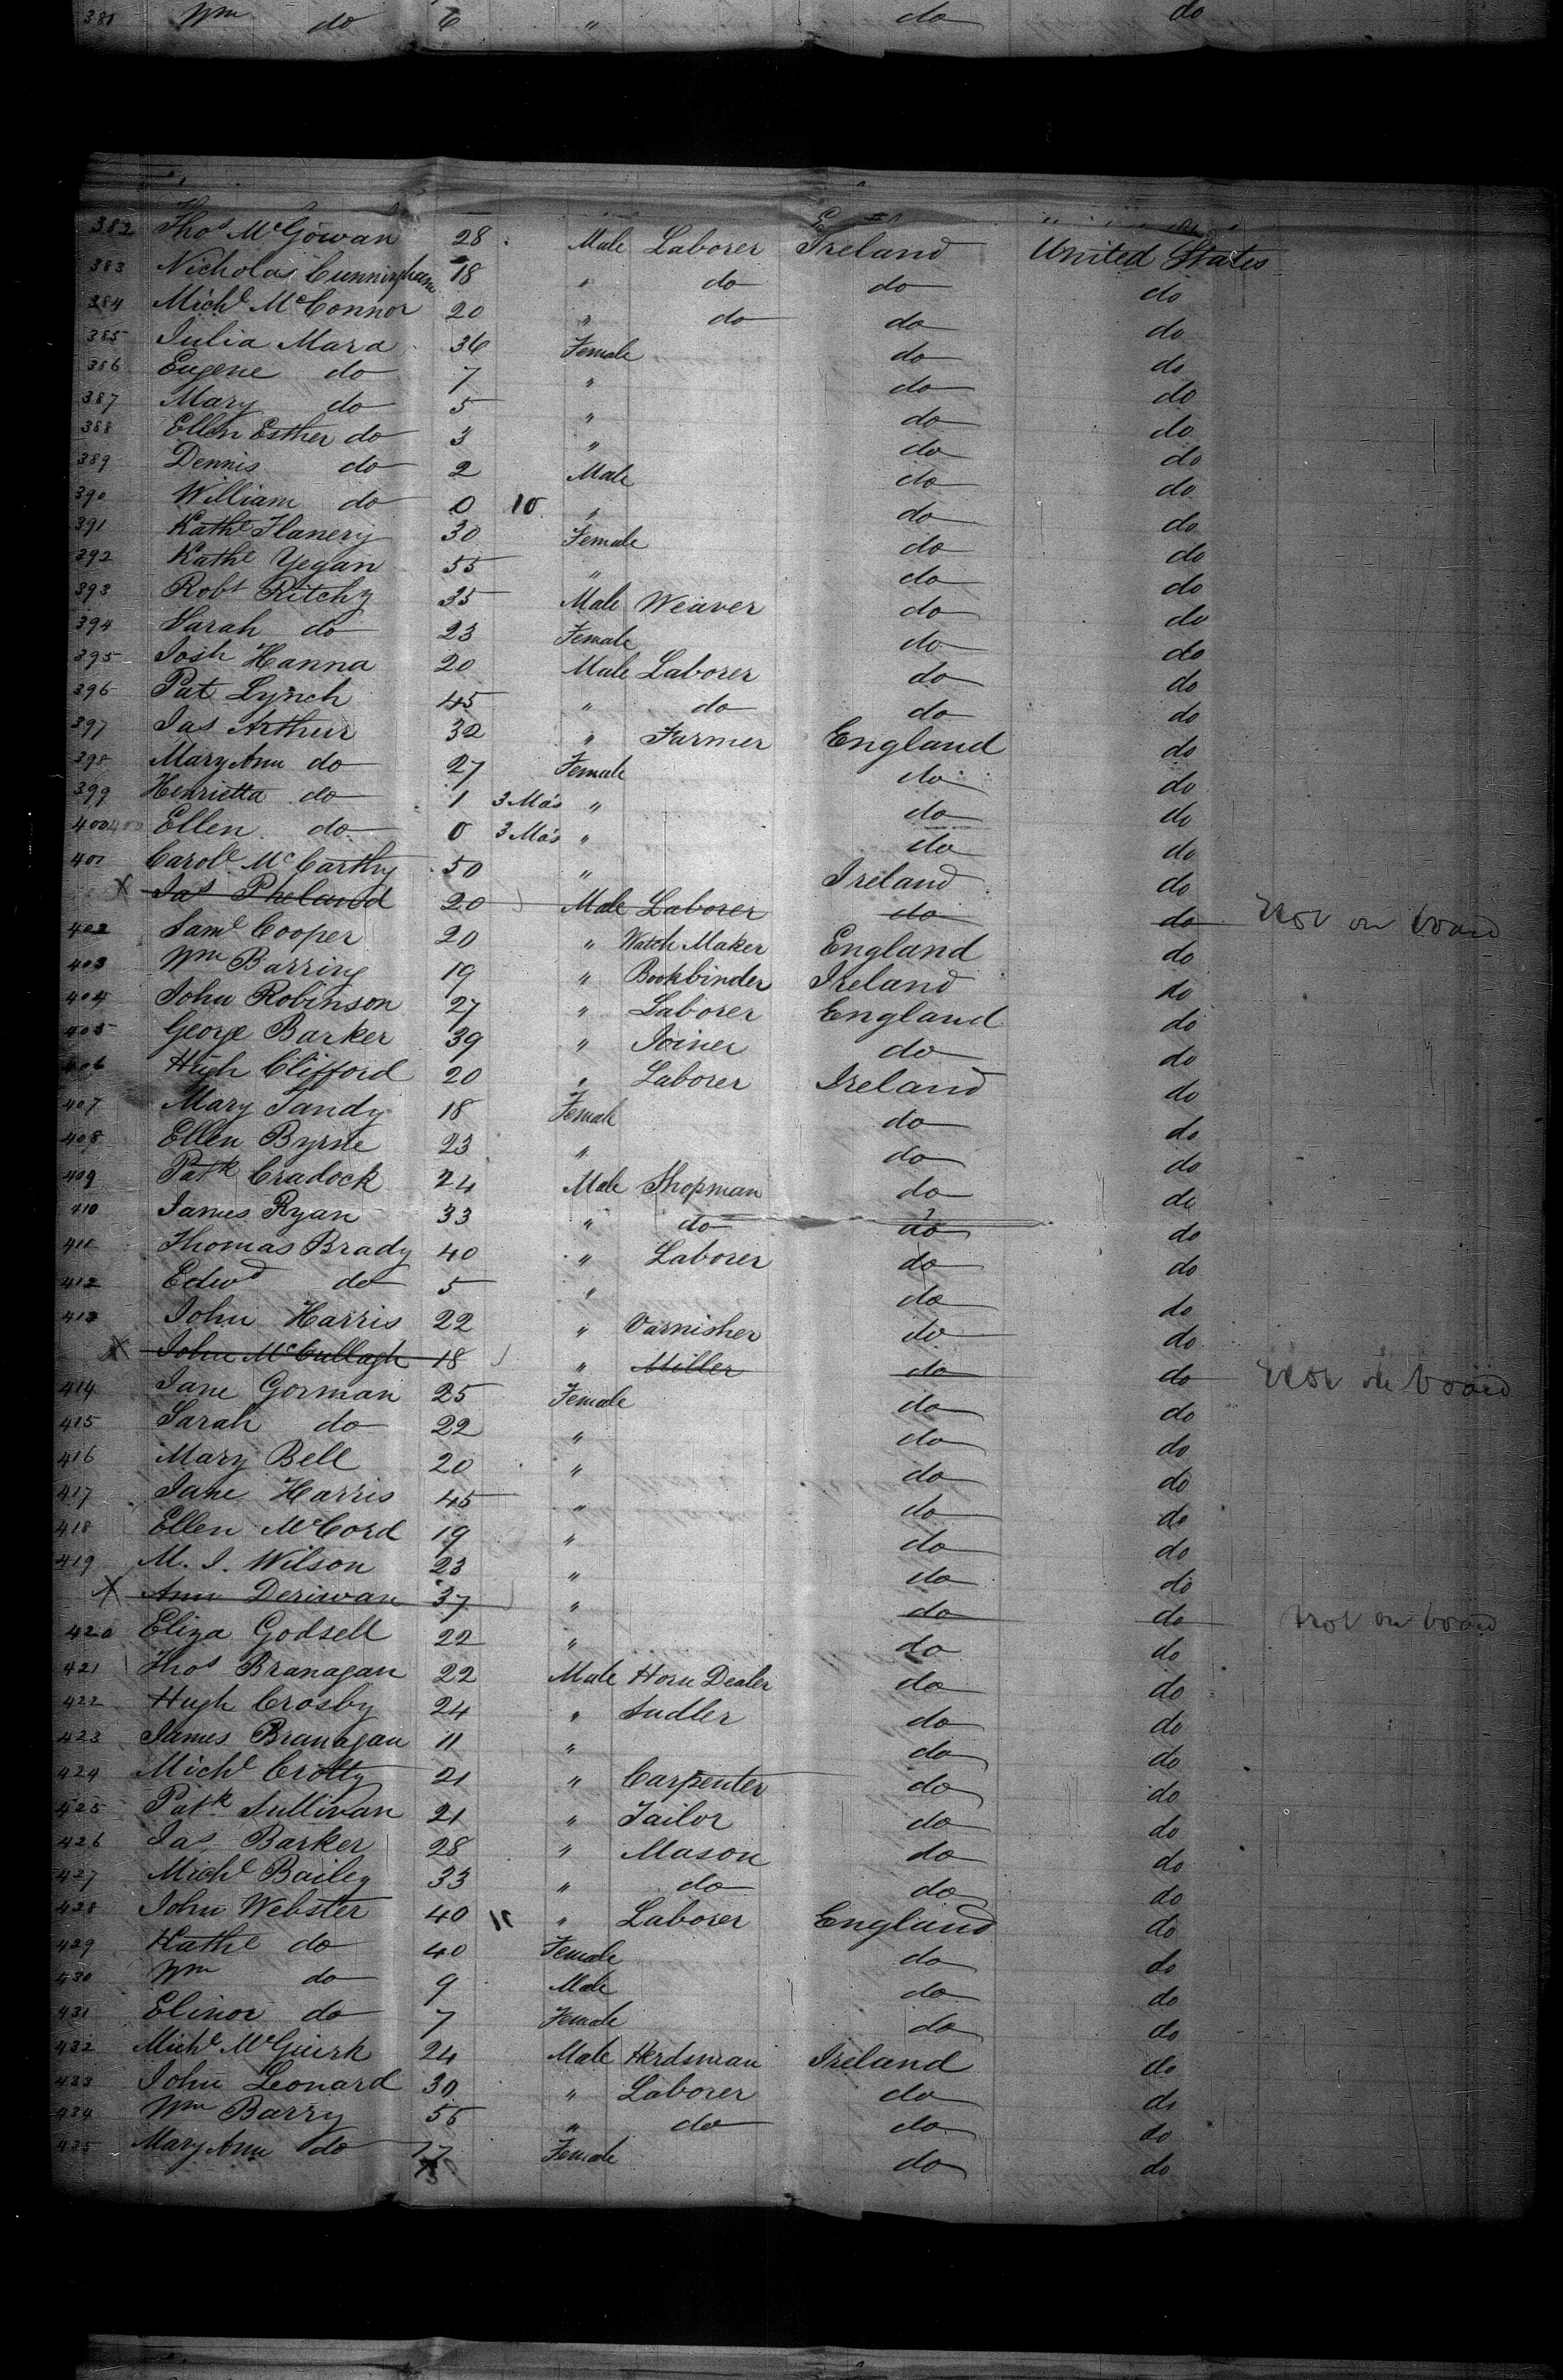 381 Wm do 6 " do do
382 Thos McGowan 28 Male Laborer Ireland United States
383 Nicholas Cunningham 18 " do do do
384 Michl McConnor 20 " do do do
385 Julia Mara 36 Female do do
386 Eugene do 7 " do do
387 Mary do 5 " do do
388 Ellen Esther do 3 " do do
389 Dennis do 2 Male do do
390 William do 0 10 " do do
391 Kathe Flanery 30 Female do do
392 Kathe Yegan 55 " do do
393 Robt Ritchy 35 Male Weaver do do
394 Sarah do 23 Female do do
395 Josh Hanna 20 Male Laborer do do
396 Pat Lynch 45 " do do do
397 Jas Arthur 32 " Farmer England do
398 Mary Ann do 27 Female do do
399 Henrietta do 1 3 Mos " do do
400 Ellen do 0 3 Mos " do do
401 Carole McCarthy 50 " Ireland do
X Jas Pheland 20 Male Laborer do do Not on board
402 Saml Cooper 20 " Watch Maker England do
403 Wm Barring 19 " Bookbinder Ireland do
404 John Robinson 27 " Laborer England do
405 George Barker 39 " Joiner do do
406 Hugh Clifford 20 " Laborer Ireland do
407 Mary Tandy 18 Female do do
408 Ellen Byrne 23 " do do
409 Patk Cradock 24 Male Shopman do do
410 James Ryan 33 " do do do
411 Thomas Brady 40 " Laborer do do
412 Edwd do 5 " do do
413 John Harris 22 " Varnisher do do
X John McCullagh 18 " Miller do do Not on board
414 Jane Gorman 25 Female do do
415 Sarah do 22 " do do
416 Mary Bell 20 " do do
417 Jane Harris 45 " do do
418 Ellen McCord 19 " do do
419 M. J. Wilson 23 " do do
X Ann Deriwan 37 " do do Not on board
420 Eliza Godsell 22 " do do
421 Thos Branagan 22 Male Horn Dealer do do
422 Hugh Crosby 24 " Sadler do do
423 James Branagan 11 " do do
424 Michl Crotty 21 " Carpenter do do
425 Patk Sullivan 21 " Tailor do do
426 Jas Barker 28 " Mason do do
427 Michl Bailey 33 " do do do
428 John Webster 40 " Laborer England do
429 Kathe do 40 Female do do
430 Wm do 9 Male do do
431 Elinor do 7 Female do do
432 Michl McGuirk 24 Male Herdsman Ireland do
433 John Leonard 30 " Laborer do do
434 Wm Barry 55 " do do do
435 Mary Ann do 17 Female do do